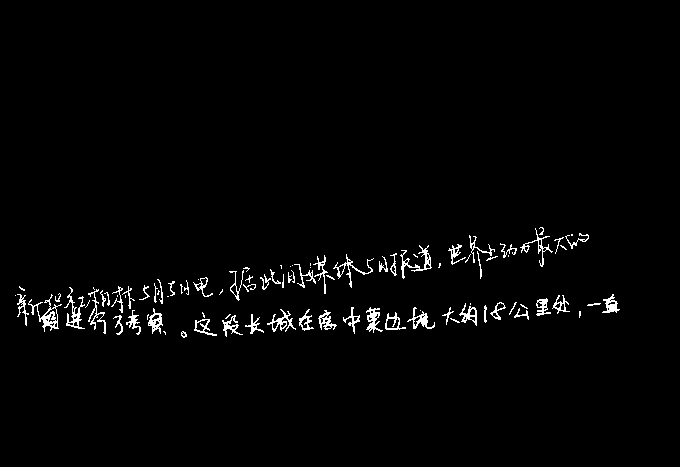 新华社柏林5月5日电，据此间媒体5日报道，世界上动力最大的
进行了考察。这段长城在居中粟边境大约18公里处，一直